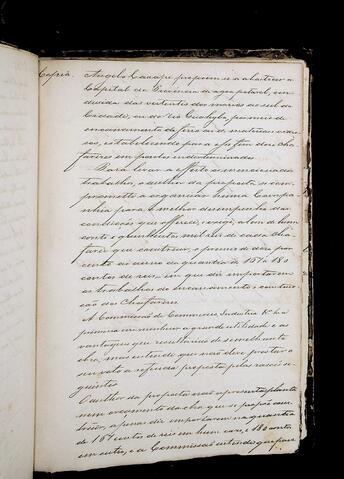 Copia.
Angelo Cacape propoem-se a abastecer a
Capital da Provincia de agua potavel, con
duzida das vertentes dos morros ao sul da
Cidade, ou do rio Cuchypó, por meio de
encanamento de ferro ou de materias
estabelecendo para esse fim dois cha
farizes em pontos indeterminados.
Para levar a effeito os mencionados
trabalhos, o author da proposta se com
promette a organizar huma Compa
nhia para o melhor desempenho das
condições que offerece, exige, alem de hum
conto e quinhentos mil reis de cada cha
fariz que construir, o premio de dez por
cento ao anno da quantia de 157 a 180
contos de reis, em que diz importarem
os trabalhos do encanamento e constru
cção dos Chafarizes.
A Commissão de Commercio Industria
primeira em reconhecer a grande utilidade e as
vantagens que resultarião de semelhante
obra, mas entende que não deve prestar o
seu voto a referida proposta pelas razões se
guintes
O author da proposta não apresenta planta
nem orçamento da obra que se propõe
apenas diz importarem na quantia
de 157 contos de reis em hum caso, e 180 contos
em outro, e a Commissão entende que para